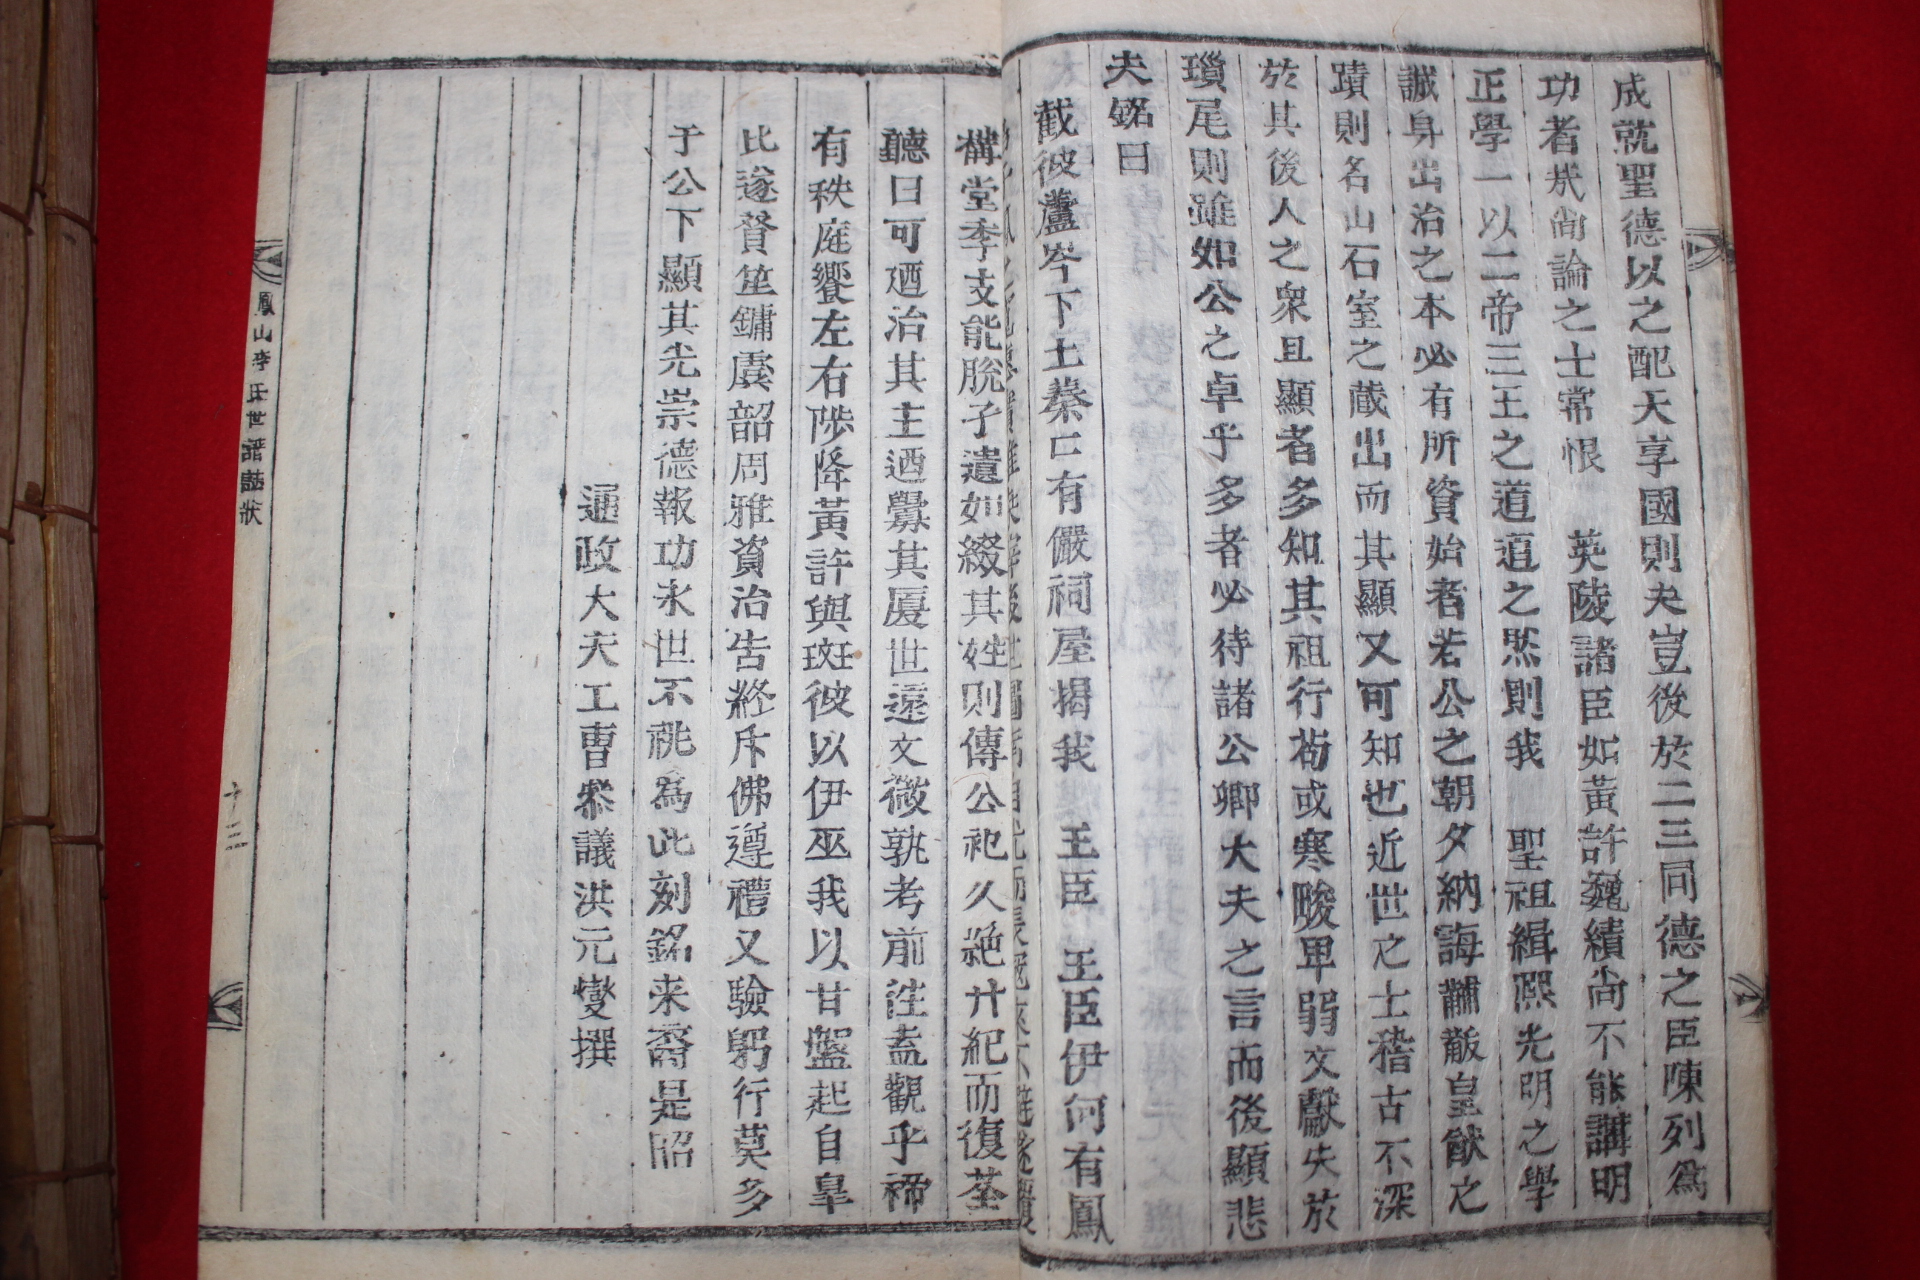 成就聖德以之配天享國則夫豈後於二三同德之臣陳列爲
功者哉尙論之士常恨 英陵諸臣如黃許巍績尙不能講明
正學一以二帝三王之道道之然則我 聖祖緝熙光明之學
誠身出治之本必有所資始者若公之朝夕納誨黼黻皇猷之
蹟則名山石室之蔵出而其顯又可知也近世之士稽古不深
於其後人之衆且顯者多知其祖行苟或寒畯卑弱文獻失於
瑣尾則雖如公之卓乎多者必待諸公卿大夫之言而後顯悲
夫銘曰
截彼蘆岑下土秦亡有儼祠屋揭我 王臣 王臣伊何有鳳
構堂季支能脫子遺如綴其姓則傳公祀久絶廾紀而復荃
聽曰可廼治其主廼釁其厦世遠文微孰考前徃盍觀乎禘
有秩庭饗左右陟降黃許與班彼以伊巫我以甘盤起自臯
比遂贊笙鏞虞韶周雅資治告終斥佛遵禮又驗躬行莫多
于公下顯其光崇德報功永世不祧為此刻銘来裔是昭
通政大夫工曹叅議洪元燮撰
鳳山李氏世譜誌狀
十三